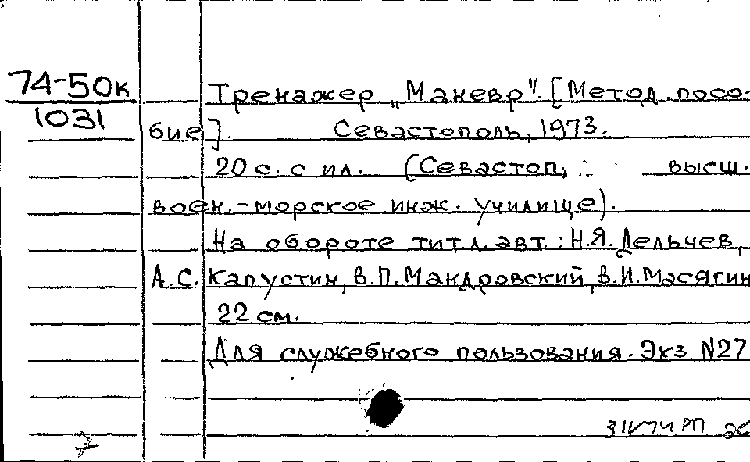 74-50к
1031
Тренажер „Маневр". [Метод. посо-
бие].      Севастополь, 1973.
20 с. с ил.   (Севастоп.   высш.
воен.-морское инж. училище).
На обороте тит.л. авт.: Н.Я. Дельчев,
А.С. Капустин, В.П. Мандровский, В.И. Масягин
22 см.
Для служебного пользования. Экз N27